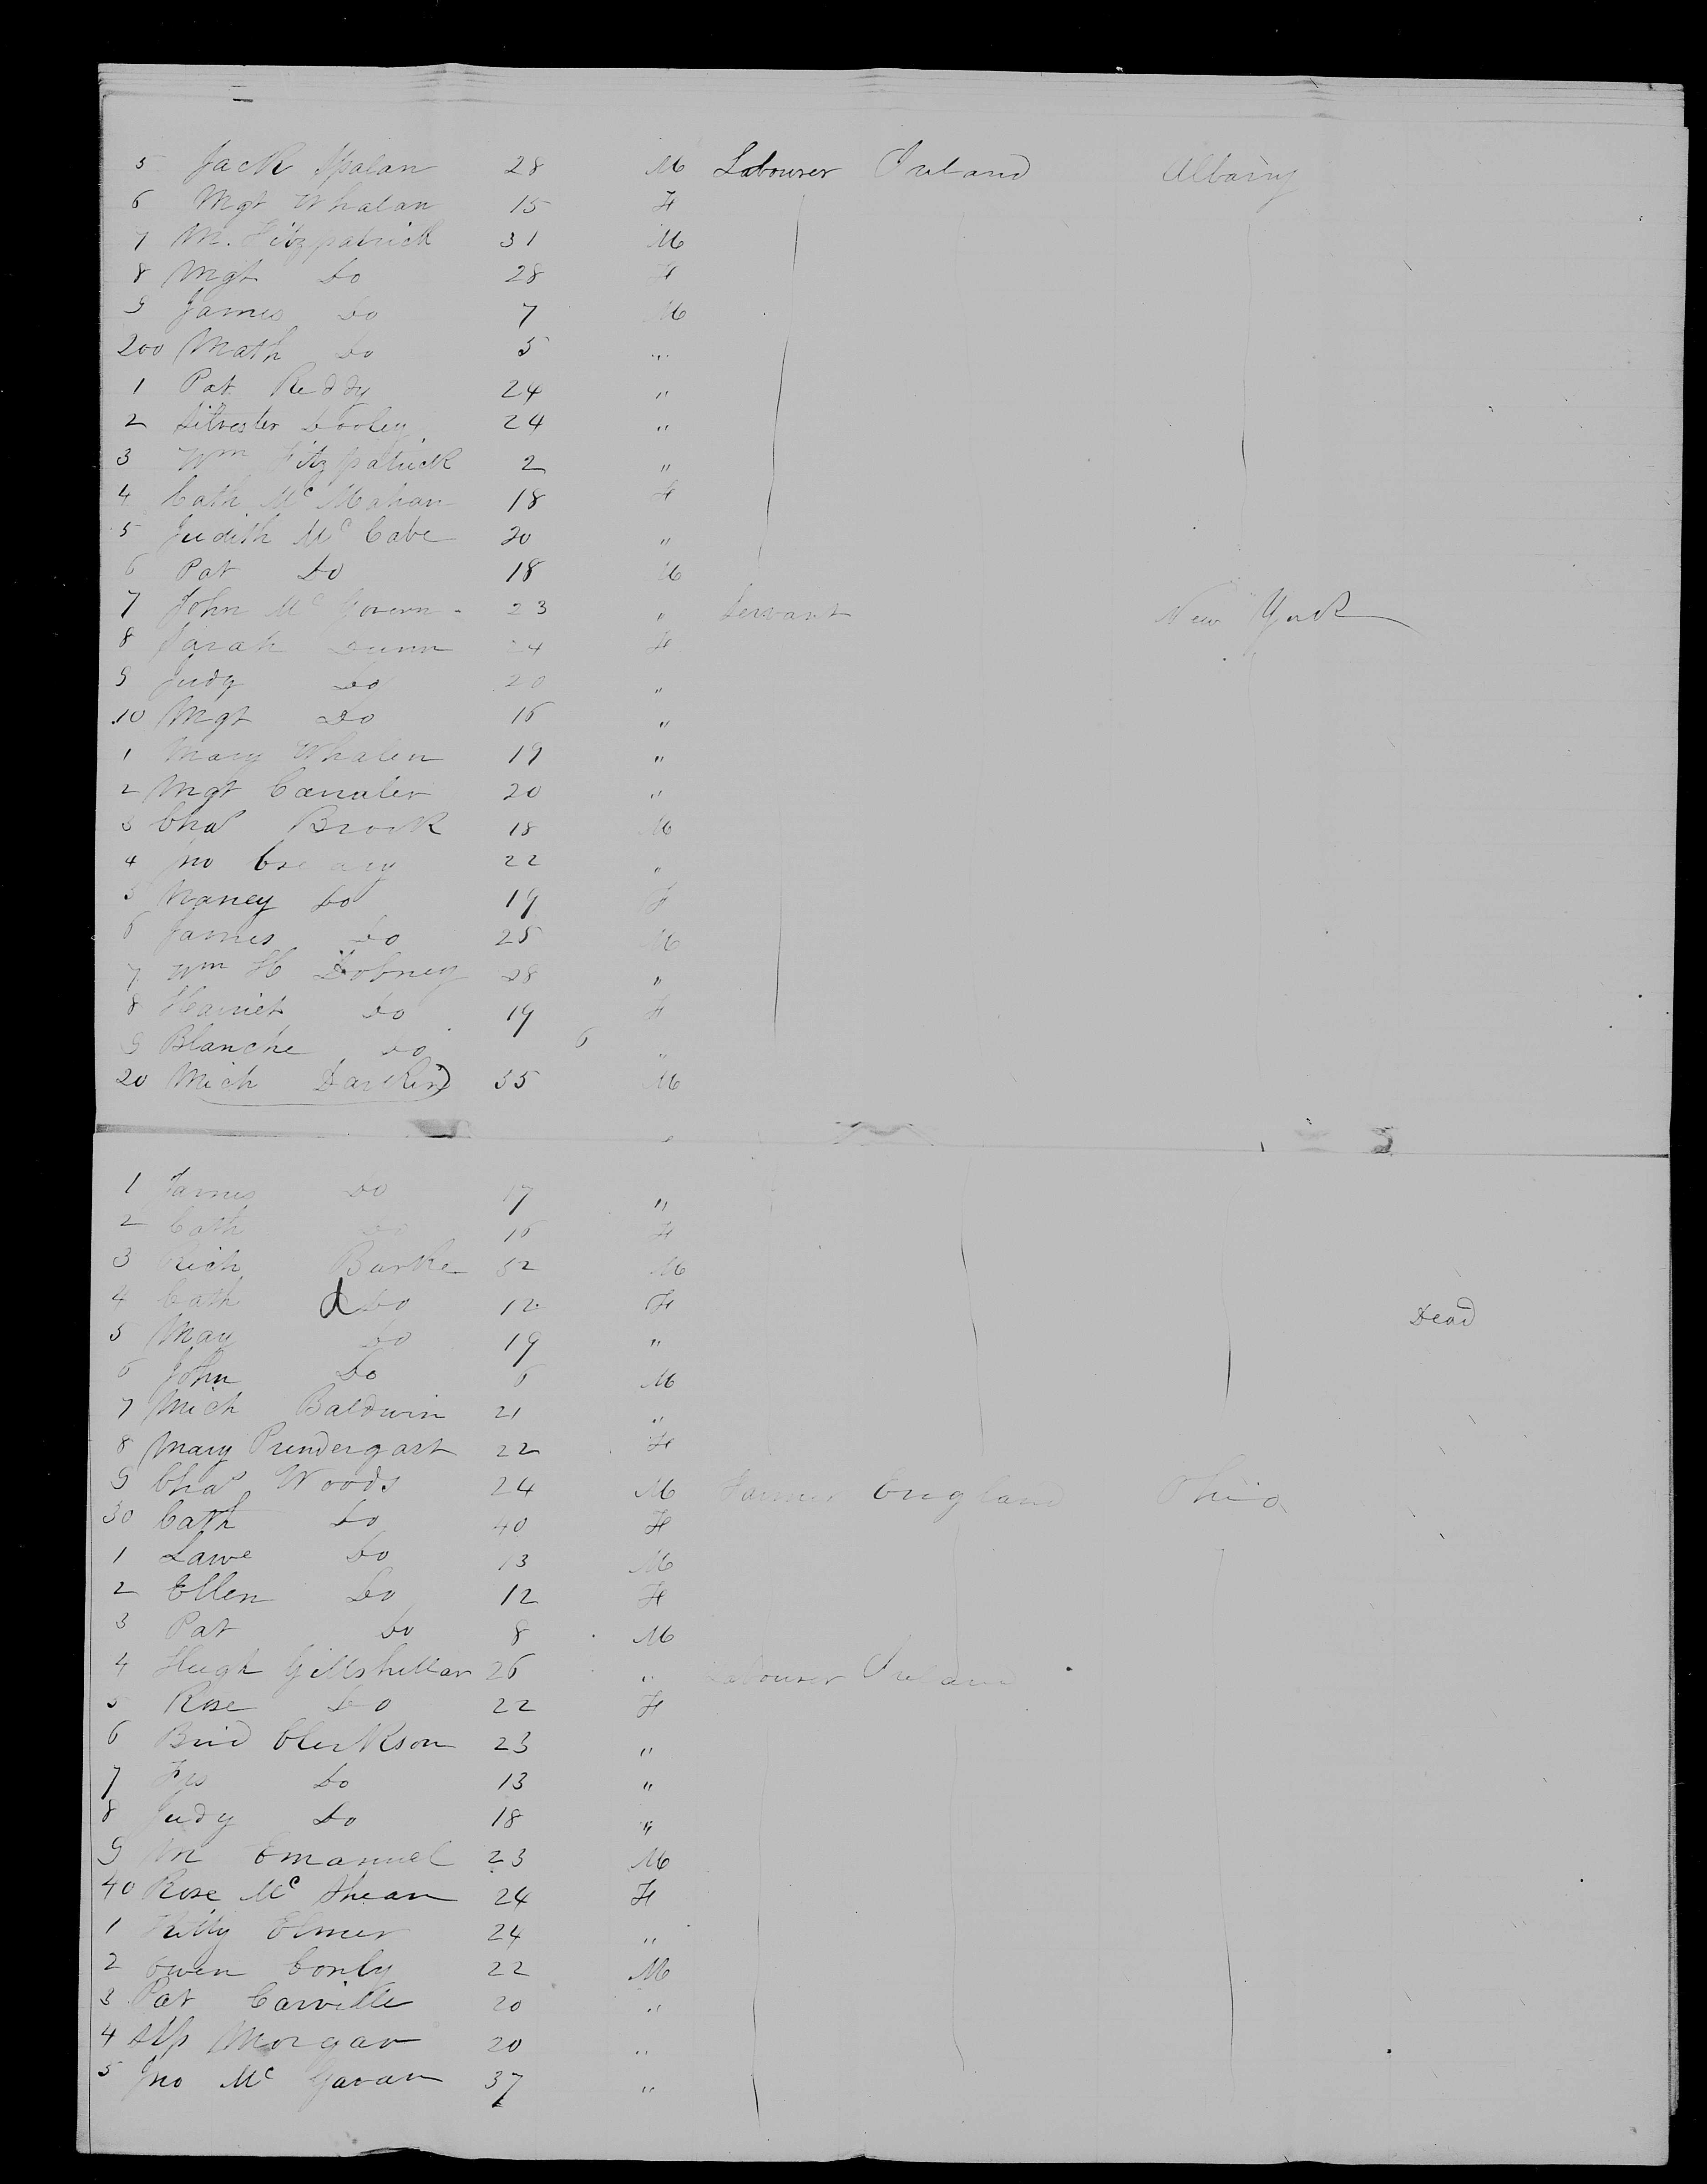 5 Jack Spalan 28 M Labourer Ireland Albany
6 Mgt Whalan 15 F
7 M. Fitzpatrick 31 M
8 Mgt Do 28 F
9 James Do 7 M
200 Math Do 5 "
1 Pat Reddy 24 "
2 Silvester Dooley 24 "
3 Wm Fitzpatrick 2 "
4 Cath Mc Mahan 18 F
5 Judith Mc Cabe 20 "
6 Pat Do 18 M
7 John Mc Govern 23 " Servant New York
8 Sarah Dunn 24 F
9 Judy Do 20 "
10 Mgt Do 16 "
1 Mary Whalen 19 "
2 Mgt 20 "
3 Chas Brock 18 M
4 Jno 22 "
5 Nancy Do 19 F
6 James Do 25 M
7 Wm H Dobney 28 "
8 Harriet Do 19 F
9 Blanche Do 6 "
20 Mich 35 M
1 James Do 17 "
2 Cath Do 16 F
3 Rich Burke 52 M
4 Cath d Do 12 F Dead
5 May Do 19 "
6 John Do 6 M
7 Mich Baldwin 21 "
8 Mary Prendergast 22 F
9 Chas Woods 24 M Farmer England Ohio
30 Cath Do 40 F
1 Lawe Do 13 M
2 Ellen Do 12 F
3 Pat Do 8 M
4 Hugh 26 " Labourer Ireland
5 Rose Do 22 F
6 Brid Clerkson 23 "
7 Do 13 "
8 Judy Do 18 "
9 M Emanuel 23 M
40 Rose Mc Shean 24 F
1 Kitty Elmer 24 "
2 Owen Conly 22 M
3 Pat Carville 20 "
4 Morgan 20 "
5 Jno Mc Gavan 37 "